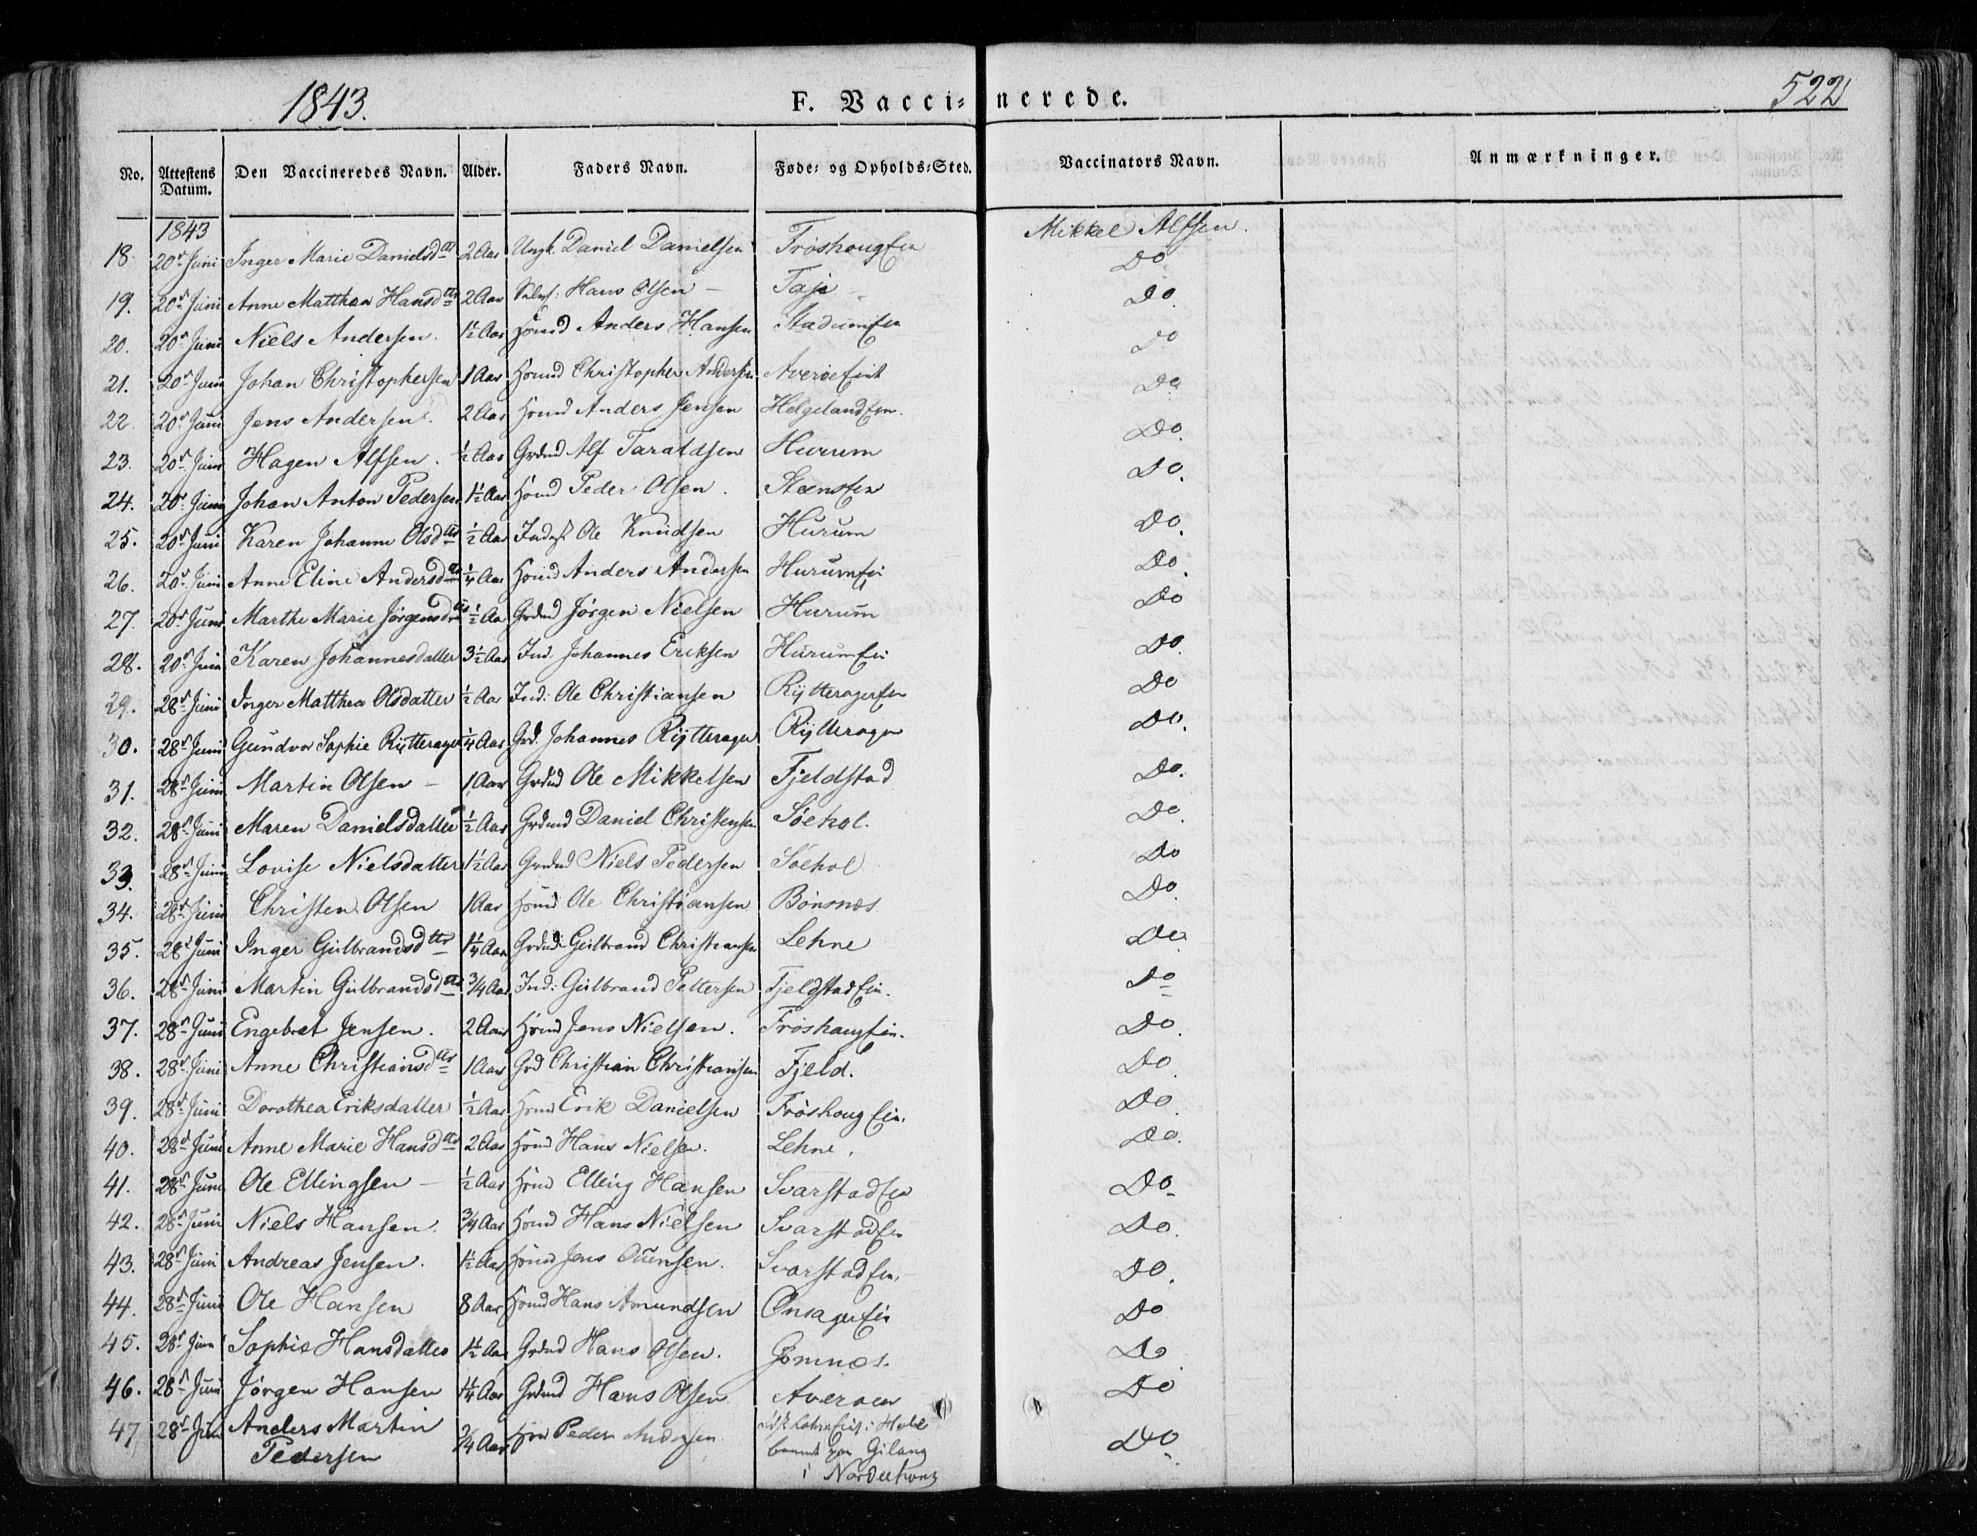 1843.
F. Vaccinerede.
522
No. Attestens Datum. Den Vaccineredes Navn. Alder. Faders Navn. Føde- og Opholds-Sted. Vaccinators Navn. Anmærkninger.
1843
18. 20de Juni Inger Marie Danielsdatr 2 Aar Ungk. Daniel Danielsen Frøshougeie Mikkel Alfsen.
Do
19. 20de Juni Anne Matthea Hansdatr 2 Aar Hans Olsen – Do.
20. 20de Juni Niels Andersen. 1½ Aar Huusmd Anders Hansen Stadumeie Do
21. 20de Juni Johan Christophersen 1 Aar Huusmd Christopher Andersen Do
22. 20de Juni Jens Andersen. 2 Aar Huusmd Anders Jensen Helgelandeie. Do.
23. 20de Juni Hagen Alfsen. ½ Aar Grdmd Alf Taraldsen Hurum Do.
24. 20de Juni Johan Anton Pedersen 1½ Aar Huusmd Peder Olsen. Steenseie
25. 20de Juni Karen Johanne Olsdatr ½ Aar Inderst Ole Knudsen Hurum Do.
26. 20de Juni Anne Eline Andersdatr ¼ Aar Huusmd Anders Andersen Hurumeie Do.
27. 20de Juni Marthe Marie Jørgensdr ½ Aar Grdmd Jørgen Nielsen Hurum Do
28. 20de Juni Karen Johannesdatter 3½ Aar Ind. Johannes Eriksen Hurumeie Do.
29. 28de Juni Inger Matthea Olsdatter ½ Aar Ind: Ole Christiansen Rytteragereie Do
30. 28de Juni Gundvor Sophie Rytterager ¼ Aar Grd. Johannes Rytterager Rytterager Do.
31. 28de Juni Martin Olsen – 1 Aar Grdmd Ole Mikkelsen Fjeldstad Do.
32. 28de Juni Maren Danielsdatter ½ Aar Grdmd Daniel Christensen Søehol. Do.
33. 28de Juni Lovise Nielsdatter 1½ Aar Grdmd Niels Pedersen Søehol Do
34. 28de Juni Christen Olsen 1 Aar Huusmd Ole Christiansen Bønsnes Do.
35. 28de Juni Inger Gulbrandsdtr 1¼ Aar Grdmd Gulbrand Christiansen Lehne Do.
36. 28de Juni Martin Gulbrandsd ¾ Aar Ind: Gulbrand Pettersen Fjeldstadeie. Do
37. 28de Juni Engebret Jensen. 2 Aar Huusmd Jens Nielsen. Frøshaugeie. Do.
38. 28de Juni Anne Christiansdatr 1 Aar Grd Christian Christiansen Fjeld. Do.
39. 28de Juni Dorothea Eriksdatter ½ Aar Huusmd Erik Danielsen Frøshougeie. Do.
40. 28de Juni Anne Marie Hansdatr 2 Aar Huusmd Hans Nielsen. Lehne. Do.
41. 28de Juni Ole Ellingsen – ½ Aar Huusmd Elling Hansen Svarstadeie Do.
42. 28de Juni Niels Hansen. ¾ Aar Huusmd Hans Nielsen Svarstadeie Do.
43. 28de Juni Andreas Jensen. 1½ Aar Huusmd Jens Svarstadeie. Do.
44. 28de Juni Ole Hansen 8 Aar Huusmd Hans Amundsen Onsagereie Do
45. 28de Juni Sophie Hansdatter 1½ Aar Grdmd Hans Olsen. Gomnæs. Do.
46. 28de Juni Jørgen Hansen 1¼ Aar Grdmd Hans Olsen Averøen Do
47. 28de Juni Anders Martin Pedersen ¾ Aar Peder Andersen. i Hole
Gilang
i Norderhoug Do.